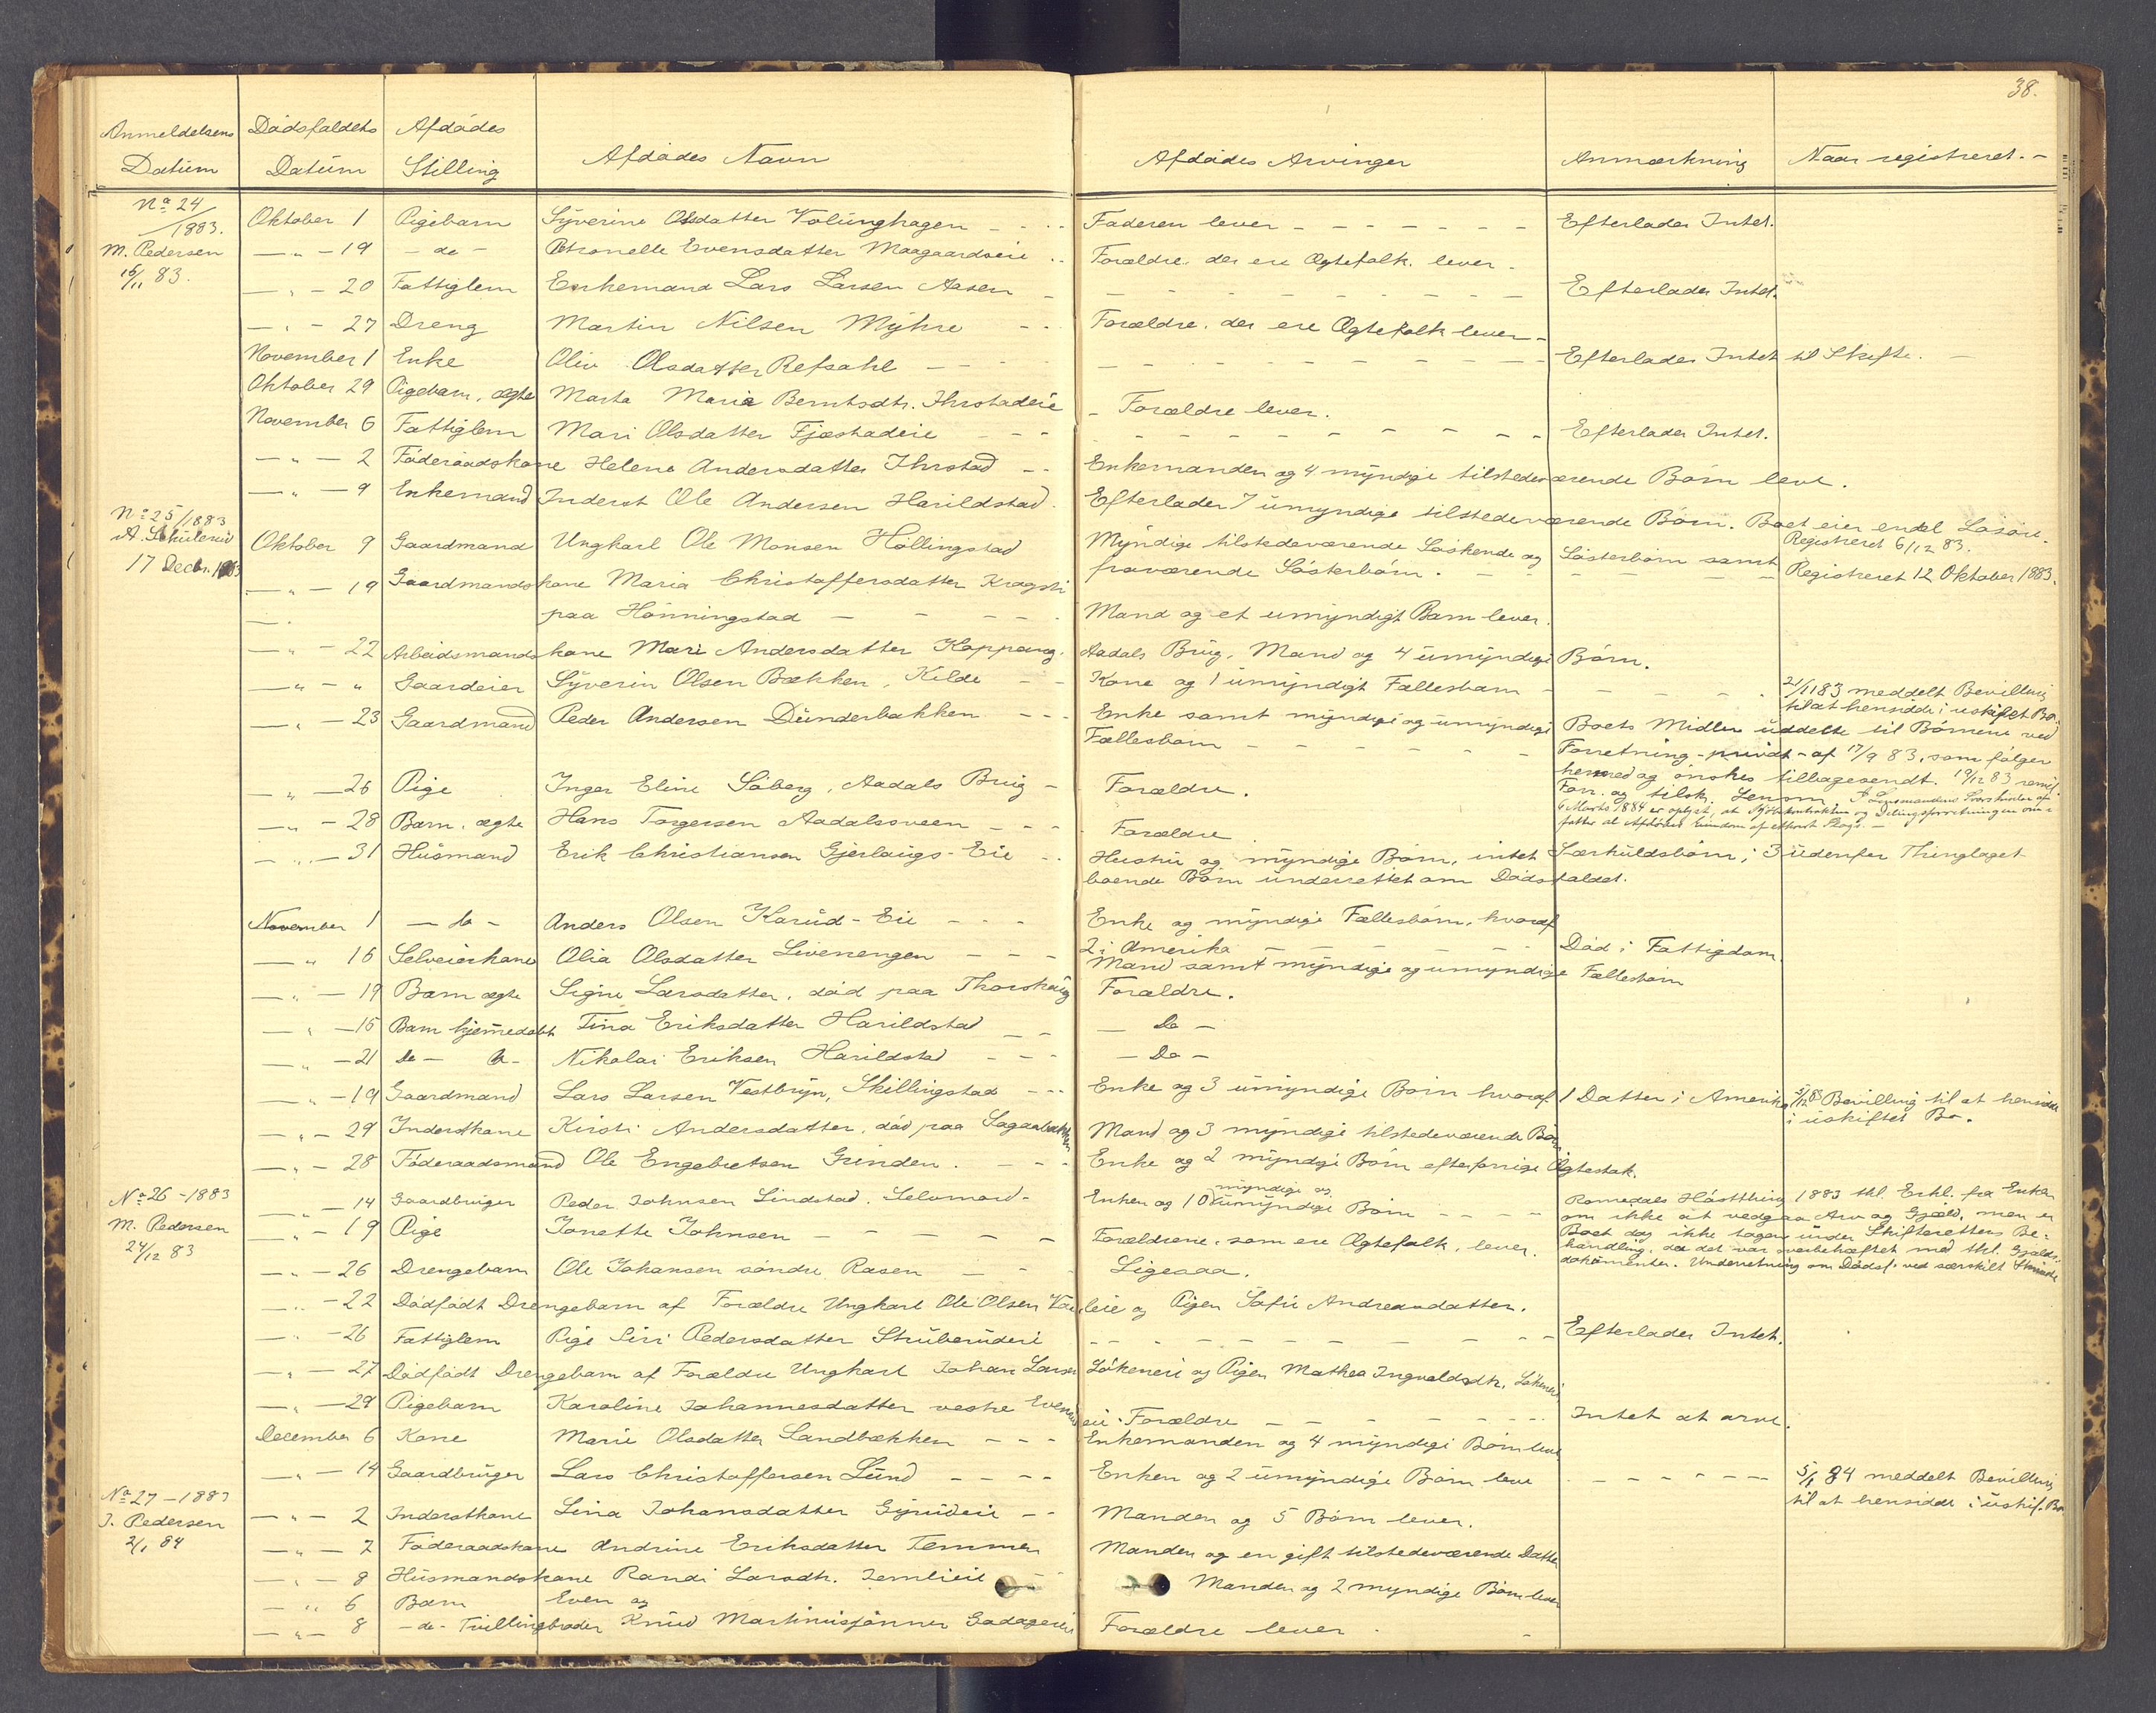 38.
Anmeldelsens Datum | Dødsfaldets Datum | Afdødes Stilling | Afdødes Navn | Afdødes Arvinger | Anmærkning | Naar registreret. -
No 24/1883. | Oktober 1 | Pigebarn | Syverine Olsdatter Volunghagen | Faderen lever | Efterlader Intet.
M. Pedersen | - " - 19 | - do - | Petronelle Evensdatter Maagaardseie | Forældre, der ere Ægtefolk, lever -
16/11 83. | - " - 20 | Fattiglem | Enkemand Lars Larsen Aasen | Efterlader Intet.
- " - 27 | Dreng | Martin Nilsen Myhre | Forældre, der ere Ægtefolk lever -
November 1 | Enke | Oliv Olsdatter Refsahl | Efterlader Intet til Skifte. -
Oktober 29 | Pigebarn, ægte | Marta Maria Berntsdtr. Ihrstadeie | - Forældre lever.
November 6 | Fattiglem | Mari Olsdatter Fjæstadeie | Efterlader Intet.
- " - 2 | Føderaadskone Helene Andersdatter Ihrstad | Enkemanden og 4 myndige tilstedeværende Børn leve.
- " - 9 | Enkemand | Inderst Ole Andersen Harildstad. | Efterlader 7 umyndige tilstedeværende Børn. Boet eier endel Løsøre.
Registreret 6/12 83.
No 25/1883 A. Skulerud | Oktober 9 | Gaardmand | Ungkarl Ole Monsen Hollingstad | Myndige tilstedeværende Søskende og Søsterbørn samt
17 Decbr. 1883 | fraværende Søsterbørn. | Registreret 12 Oktober 1883.
- " - 19 | Gaardmandskone Maria Christoffersdatter Kragsti
paa Hønningstad | Mand og et umyndigt Barn lever.
- " - 22 | Arbeidsmandskone Mari Andersdatter Koppang, | Aadals Brug, Mand og 4 umyndige Børn.
- " - " | Gaardeier | Syverin Olsen Bækken, Kilde | Kone og 1 umyndigt Fællesbarn | 21/11 83 meddelt Bevilling
til at hensidde i uskiftet Bo.
- " - 23 | Gaardmand | Peder Andersen Dunderbakken | Enke samt myndige og umyndige | Boets Midler uddelte til Børnene ved
Fællesbørn | Forretning - privat - af 17/9 83, som følger
hermed og ønskes tilbagesendt. 19/12 83 remit.
- " - 26 | Pige | Inger Eline Søberg, Aadals Brug - | Forældre. | Forr. og tilsk.
6 Marts 1884 er oplyst, at
- " - 28 | Barn, ægte | Hans Torgersen Aadalssveen | Forældre
- " - 31 | Husmand | Erik Christiansen Gjerlaugs-Eie | Hustru og myndige Børn, intet Særkuldsbørn; 3 udenfor Thinglaget
boende Børn underrettet om Dødsfaldet.
November 1 | - do - | Anders Olsen Karud-Eie | Enke og myndige Fællesbørn, hvoraf
2 i Amerika | Død i Fattigdom.
- " 16 | Selveierkone | Olia Olsdatter Sivenengen | Mand samt myndige og umyndige Fællesbørn
- " - 19 | Barn ægte | Signe Larsdatter, død paa Thorshaug | Forældre.
- " - 15 | Barn hjemmedøbt | Tina Eriksdatter Harildstad | - Do -
- " - 21 | do - do - | Nikolai Eriksen Harildstad | - Do -
- " - 19 | Gaardmand | Lars Larsen Vestbyn, Skillingstad | Enke og 3 umyndige Børn hvoraf 1 Datter i Amerika | 5/12 83 Bevilling til at hensidde
i uskiftet Bo.
- " - 29 | Inderstkone | Kirsti Andersdatter, død paa Sagaabakken | Mand og 3 myndige tilstedeværende Børn
- " - 28 | Føderaadsmand | Ole Engebretsen Grinden. | Enke og 2 myndige Børn efter forrige Ægteskab.
No 26 - 1883 | - " - 14 | Gaardbruger | Peder Johnsen Lindstad. Selvmord - | Enken og 10 myndige og umyndige Børn | Romedals Høstthing 1883 tkl. Erkl. fra Enken
M. Pedersen | - " - 19 | Pige | Jonette Johnsen | Forældrene, som ere Ægtefolk, lever. | om ikke at vedgaa Arv og Gjæld, men er
24/12 83 | Boet dog ikke tagen under Skifterettens Be-
handling, da det var overbehæftet med tkl. Gjælds
- " - 26 | Drengebarn | Ole Johansen søndre Rasen | Ligesaa. | dokumenter. Underretning om Dødsf. ved særskilt
- " - 22 | Dødfødt Drengebarn af Forældre Ungkarl Ole Olsen Voldeie og Pigen Sofie Andreasdatter.
- " - 26 | Fattiglem | Pige Siri Pedersdatter Struberuderie | Efterlader Intet.
- " - 27 | Dødfødt Drengebarn af Forældre Ungkarl Johan Larsen Løkeneie og Pigen Mathea Ingvaldsdtr. Løkeneie
- " - 29 | Pigebarn | Karoline Johannesdatter vestre Evenrudeie. Forældre | Intet at arve.
December 6 | Kone | Marie Olsdatter Sandbækken | Enkemanden og 4 myndige Børn leve
- " - 14 | Gaardbruger | Lars Christoffersen Lund | Enken og 2 umyndige Børn leve | 5/1 84 meddelt Bevilling
til at hensidde i uskif. Bo
No 27 - 1883 | - " - 2 | Inderstkone | Lina Johansdatter Gjrudeie | Manden og 5 Børn lever.
J. Pedersen
2/1 84 | - " - 7 | Føderaadskone Andrine Eriksdatter Temmen | Manden og en gift tilstedeværende Datter
- " - 8 | Husmandskone Randi Larsdtr. Jemlieie | Manden og 2 myndige Børn lever
- " 6 | Barn | Even og
- " - 8 | - do - Tvillingbroder Knud Martinussønner | Forældre lever.